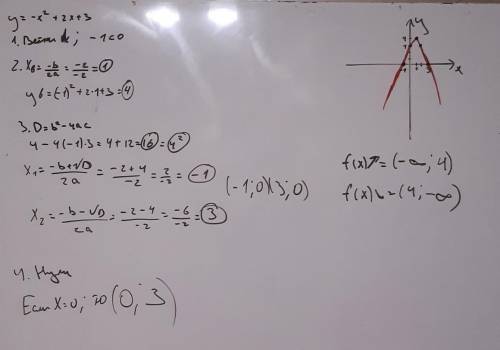 y = -x² + 2x + 3
1. Ветви ↓; -1<0
2. Xв = -b/2a = -2/-2 = 1
yв = (-1)² + 2·1 + 3 = 4
3. D = b² - 4ac
4 - 4(-1)·3 = 4 + 12 = 16 = 4²
X₁ = -b+√D/2a = -2+4/-2 = 2/-2 = -1
(-1;0)(3;0)
X₂ = -b-√D/2a = -2-4/-2 = -6/-2 = 3
4. Нули
Если X=0, то (0; 3)
y
x
f(x)↗ = (-∞; 4)
f(x)↘ = (4; -∞)